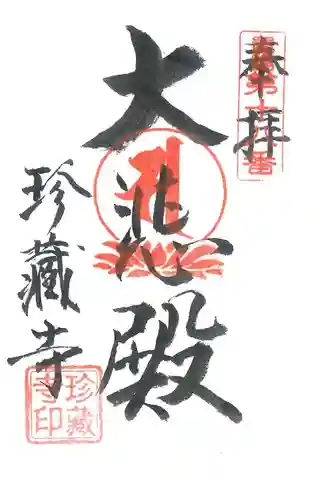 奉拝
大悲殿
珍藏寺
珍藏
寺印